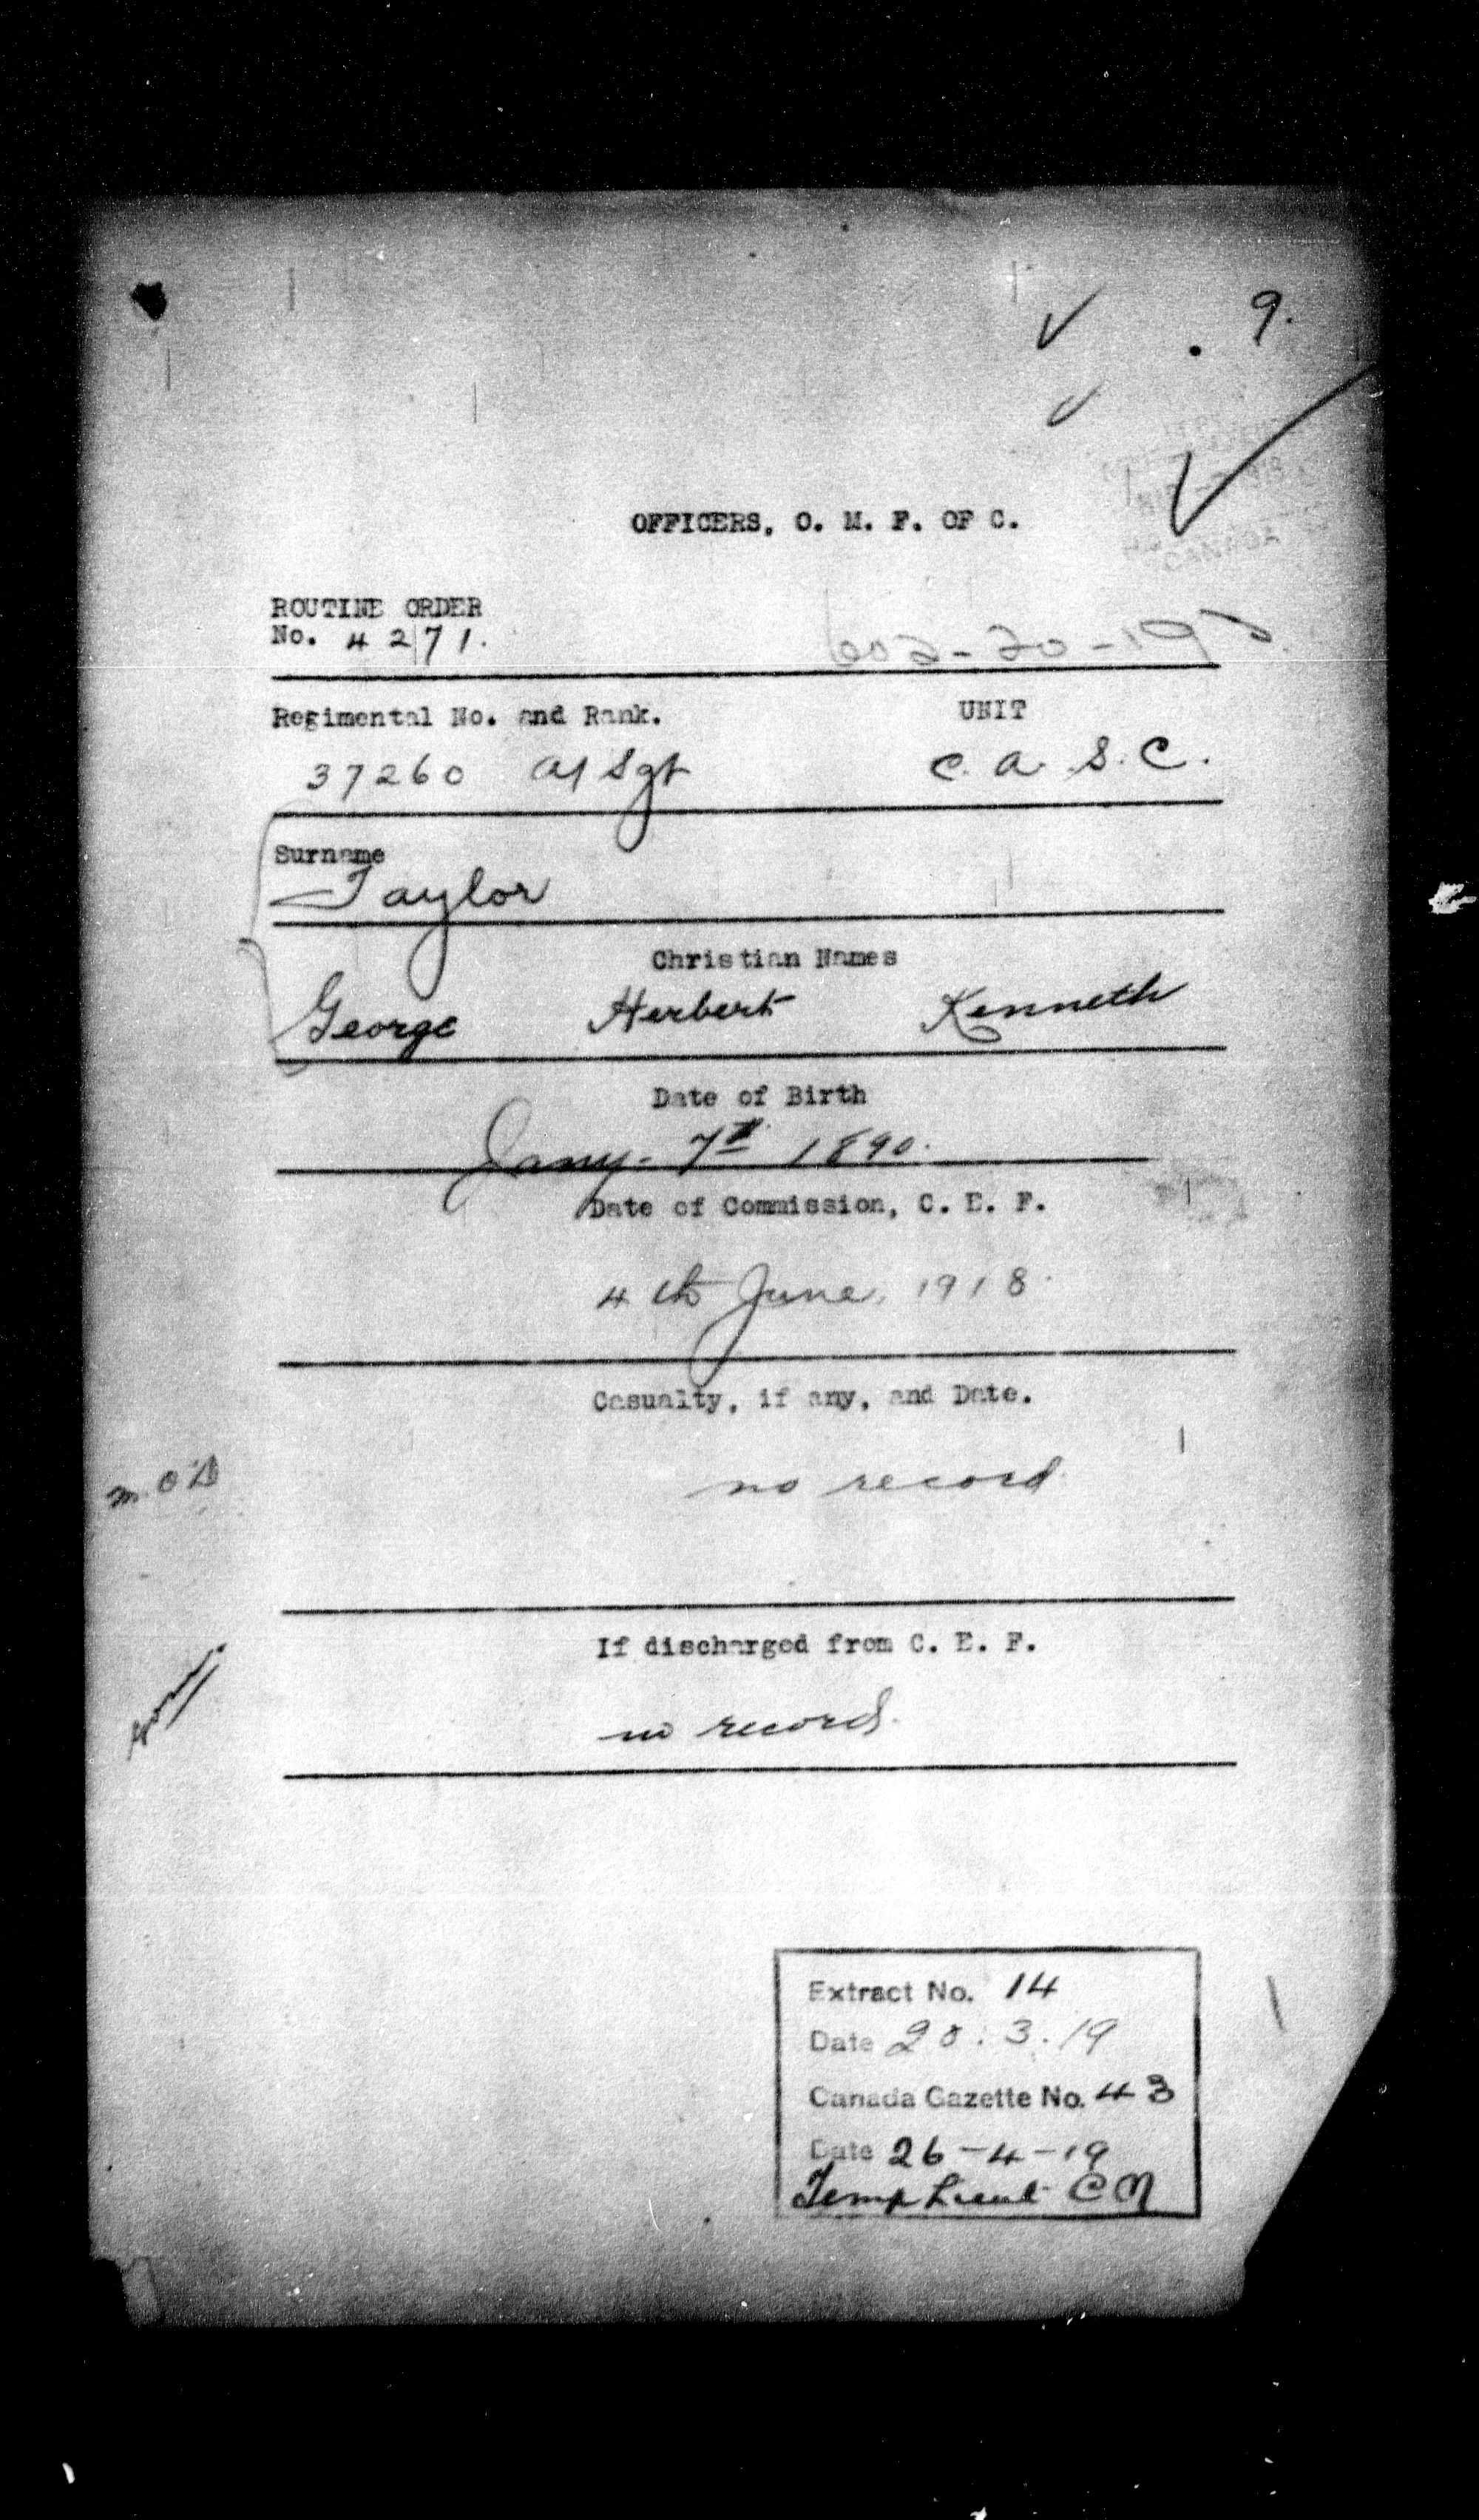 9.
OFFICERS, O. M. F. OF C.
ROUTINE ORDER
No. 4271.
Regimental No. and Rank. UNIT
37260 A/Sgt C. A. S. C.
Surname
Taylor
Christian Names
George Herbert Kenneth
Date of Birth
Jany. 7th 1890.
Date of Commission, C. E. F.
4th June, 1918.
Casualty, if any, and Date.
no record
If discharged from C. E. F.
no record.
Extract No. 14
Date 20.3.19
Canada Gazette No. 43
Date 26-4-19
Temp Lieut